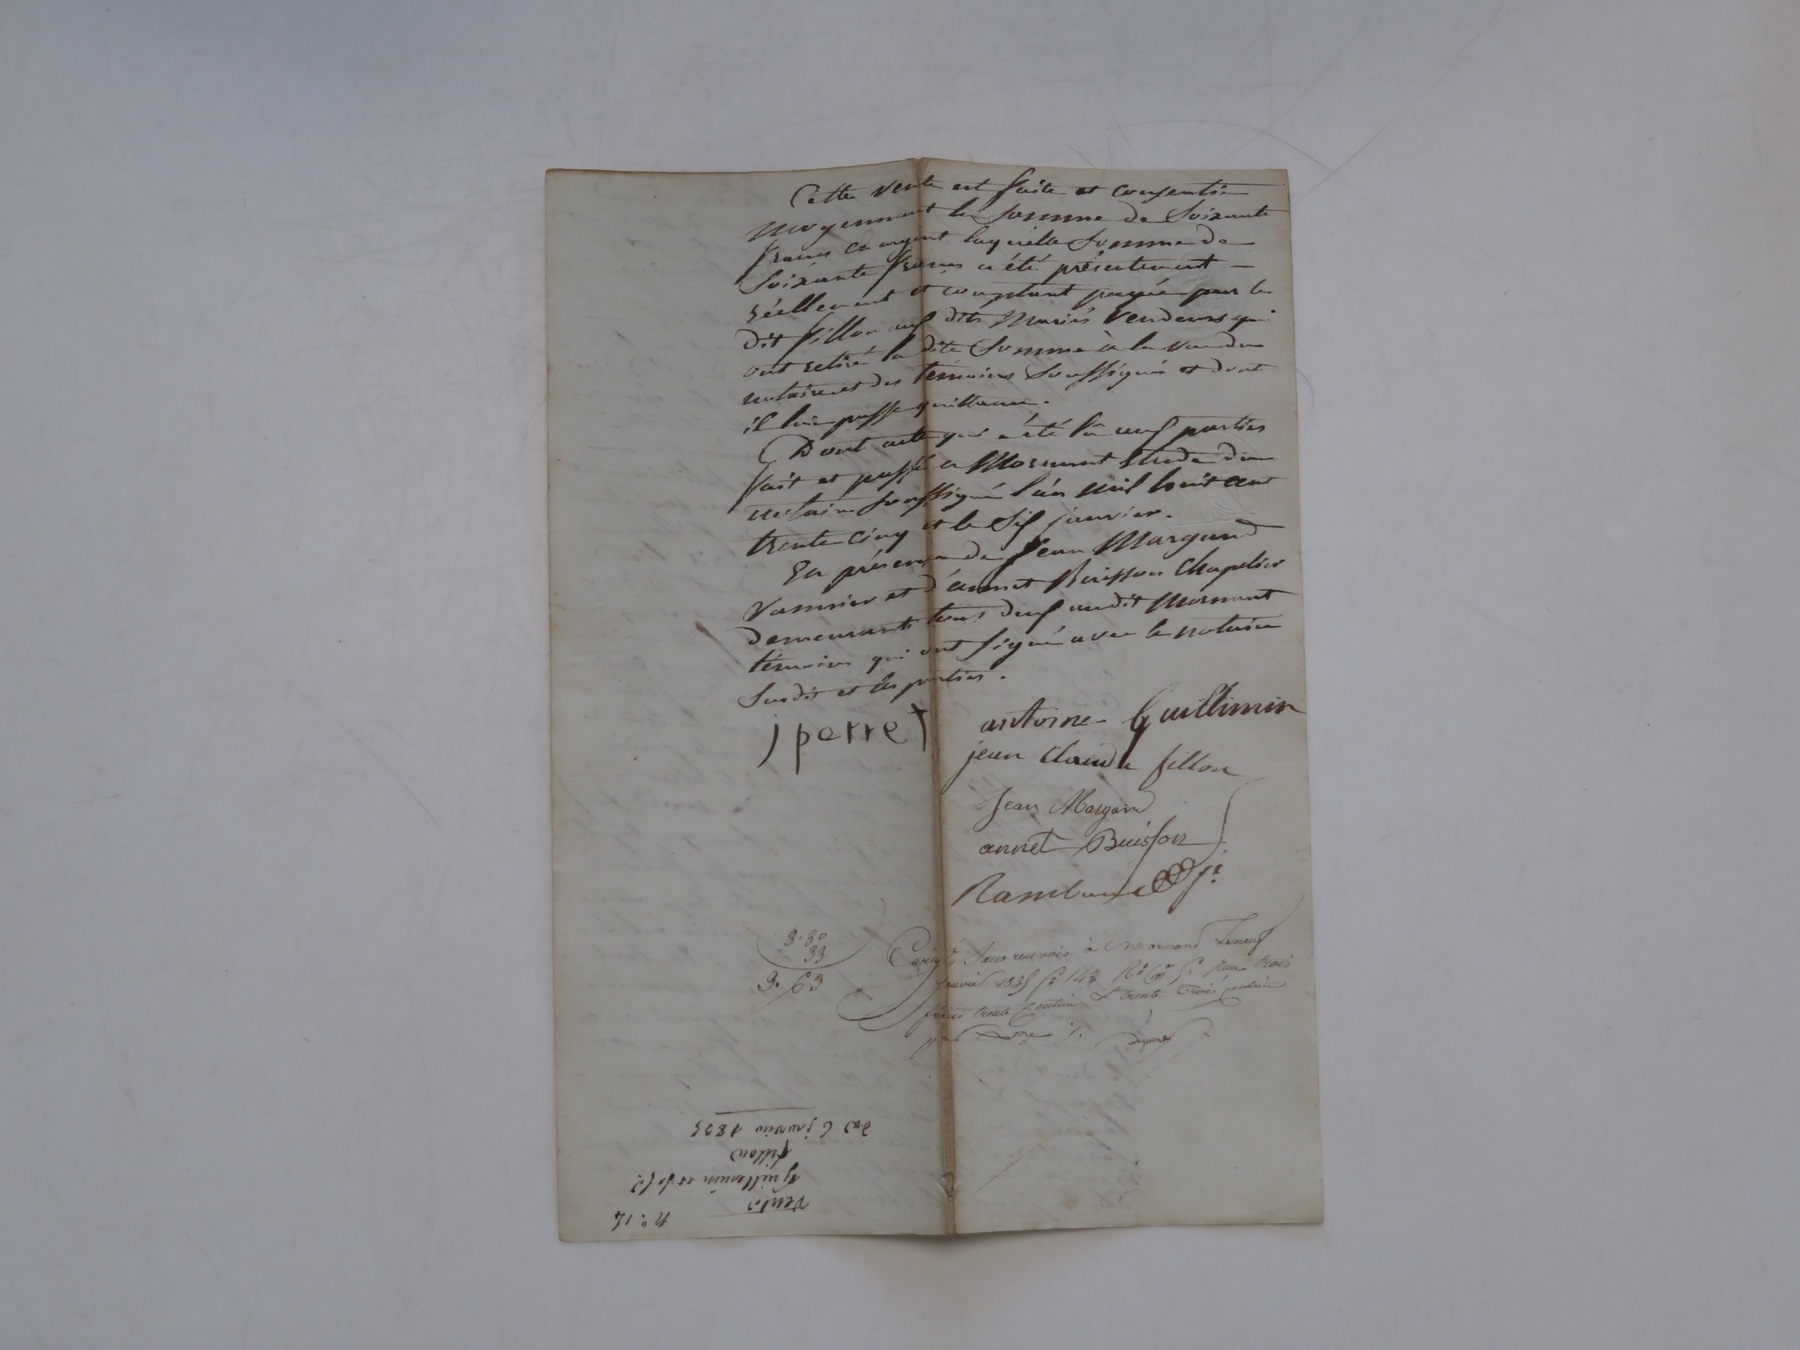 Cette vente est faite et consentie
moyennant la somme de soixante
francs en argent laquelle somme de
soixante francs a été présentement —
réellement et comptant payée par le
dit fillon auf dits Mariés Vendeurs qui
ont retiré la dite somme à la vue du
notaire et des témoins soussignés et dont
il lui passe quittance.
Dont acte qui a été lû auf parties
fait et passé a Mornant Etude du
notaire soussigné l'an mil huit cent
trente cinq et le Sif janvier.
En présence de Jean Margand
Vannier et d'annet Buisson Chapelier
demeurants tous deuf au dit Mornant
témoins qui ont signé avec le notaire
susdit et les parties.
j perret antoine Guillimin
jean Claude fillon
Jean Margand
annet Buisson
3.30
33
3.63
à Mornant le neuf
janvier 1835 fº 143 Rº Cse 5. Reçu trois
francs trente centimes & trente trois
nº. 14
Vente
Guillemin et sa fe
fillon
du 6 janvier 1835